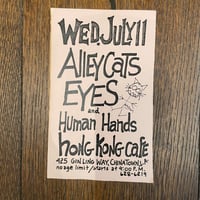 WED. JULY 11
ALLEY CATS
EYES
and
Human Hands
hong kong cafe
425 GIN LING WAY, CHINATOWN, LA
no age limit / starts at 9:00 P.M.
628-6217